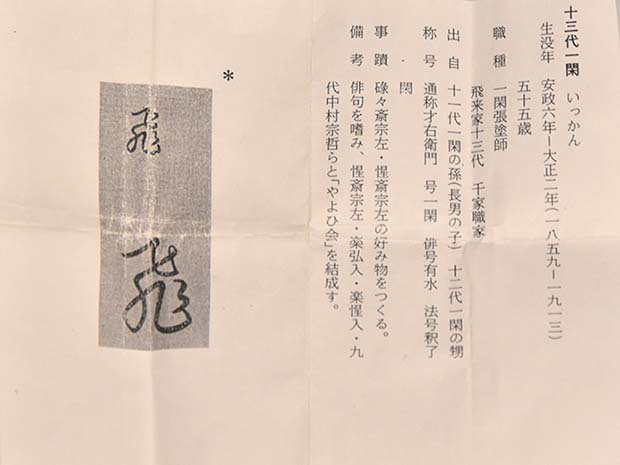 十三代一閑　いっかん
生没年　安政六年ー大正二年(一八五九ー一九一三)
五十五歳
職種　一閑張塗師
飛来家十三代　千家職家
出自　十一代一閑の孫(長男の子)　十二代一閑の甥
称号　通称才右衛門　号一閑　俳号有水　法号釈了
・閑
事蹟　碌々斎宗左・惺斎宗左の好み物をつくる。
備考　俳句を嗜み、惺斎宗左・楽弘入・楽惺入・九
代中村宗哲らと「やよひ会」を結成す。
*
飛
飛